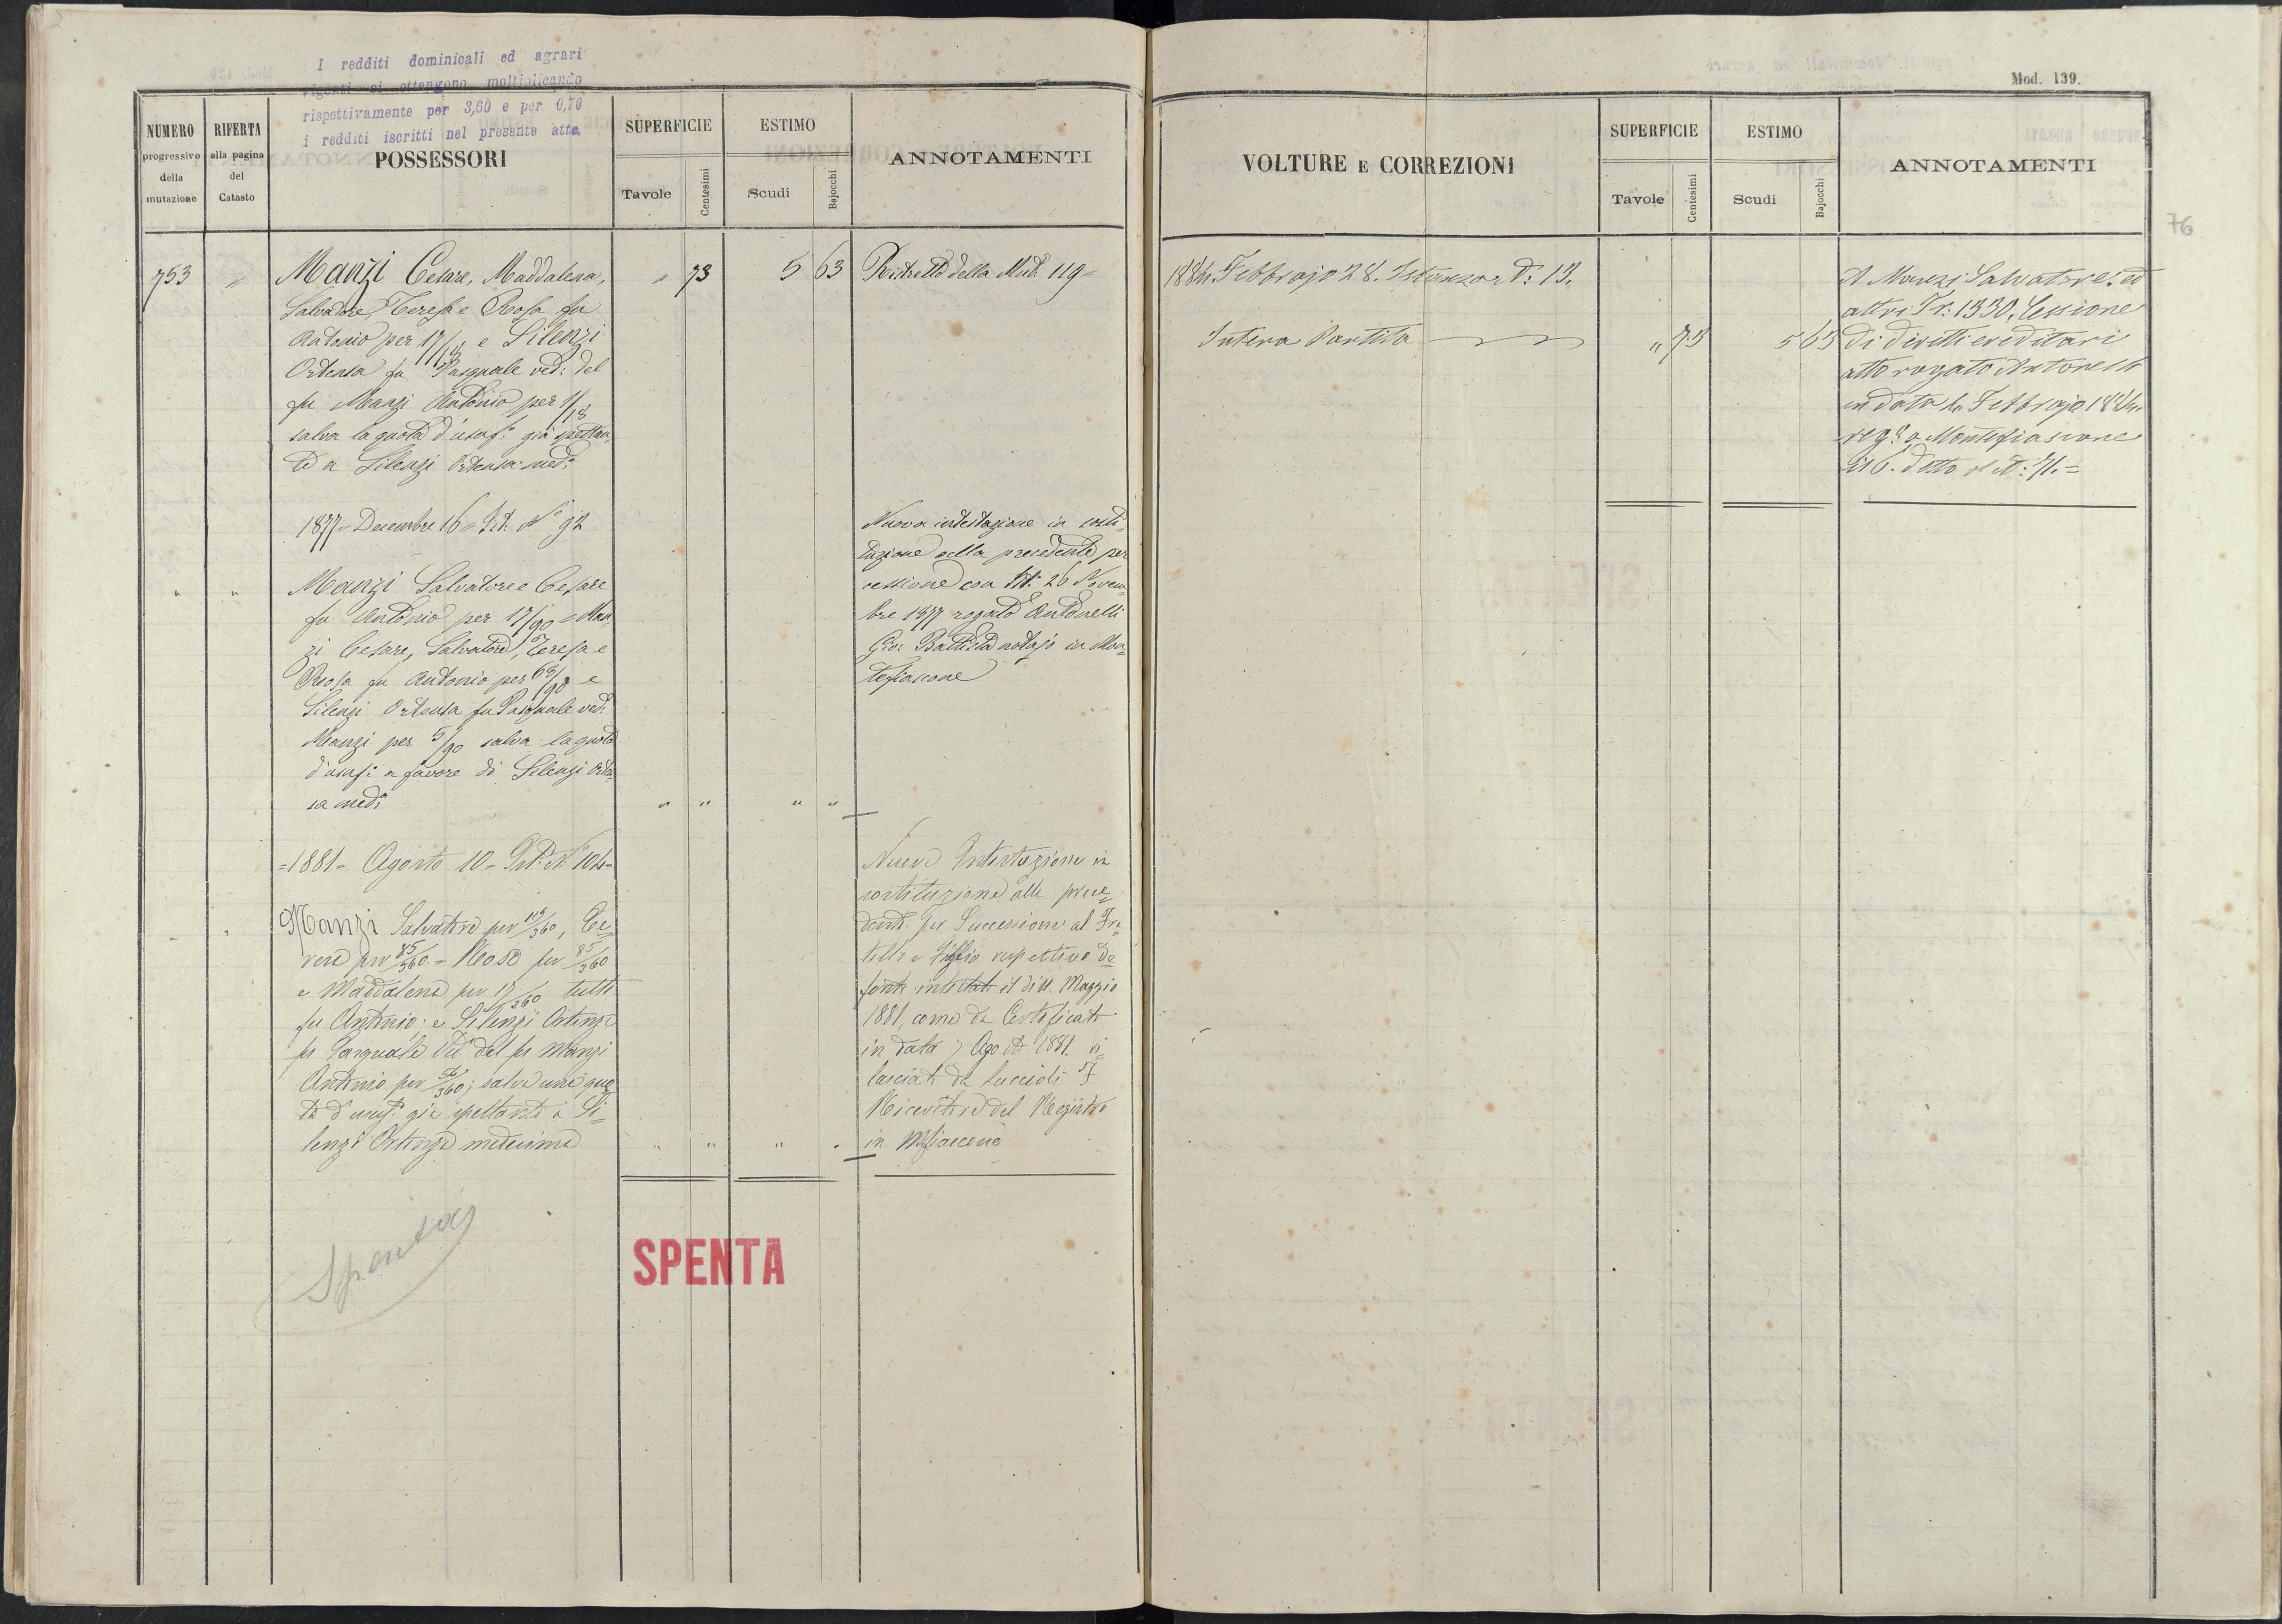 I redditi dominicali ed agrari
vigenti si ottengono moltiplicando
rispettivamente per 3,60 e per 0,70
i redditi iscritti nel presente atto.
NUMERO
progressivo
della
mutazione
RIFERTA
alla pagina
del
Catasto
POSSESSORI
SUPERFICIE
Tavole
Centesimi
ESTIMO
Scudi
Bajocchi
ANNOTAMENTI
753 " Manzi Cesare, Maddalena, " 73 5 63 Ristretto della Mut. 119=
Salvatore, Teresa e Rosa fu
Antonio per 17/18 e Silenzi
Ortensa fu Pasquale ved: del
fu Manzi Antonio per 1/18
salva la quota d'usuf: già spettan
te a Silenzi Ortensa med:
1877= Decembre 16= Ist. N° 92
" " Manzi Salvatore e Cesare
fu Antonio per 17/90 = Man
zi Cesare, Salvatore, Teresa e
Rosa fu Antonio per 68/90 e
Silenzi Ortensa fu Pasquale ved.
Manzi per 5/90 salva la quota
d'usuf: a favore di Silenzi Orten
sa med: " " " "
Nuova intestazione in sosti=
tuzione della precedente per
cessione con Ist: 26 Novem
bre 1877 rogato Antonelli
Gio: Battista notajo in Mon
tefiascone
=1881= Agosto 10= Ist. N. 104=
" " Manzi Salvatore per 119/360, Te=
resa per 85/360 = Rosa per 85/360
e Maddalena per 17/360 tutti
fu Antonio; e Silenzi Ortenza
fu Pasquale Ved. del fu Manzi
Antonio per /360; salva una quo
ta d'usuf. già spettante a Si=
lenzi Ortenza medesima " " " "
Nuova Intestazione in
sostituzione alla prece=
dente per Successione al Fra
tello e Figlio rispettivo de
funto intestato il di 11 Maggio
1881, come da Certificato
in data 7 Agosto 1881. ri=
lasciato da Luccioli F.
Ricevitore del Registro
in Mfiascone
Spenta
SPENTA
Mod. 139.
VOLTURE E CORREZIONI
SUPERFICIE
Tavole
Centesimi
ESTIMO
Scudi
Bajocchi
ANNOTAMENTI
76
1884. Febbrajo 28. Istanza N: 13.
Intera Partita " 73 5 63
A Manzi Salvatore ed
altri Tr: 1330. Cessione
di diritti ereditari
atto rogato Antonelli
in data 4 Febbrajo 1884.
reg° a Montefiascone
il 6. detto al N: 71.=